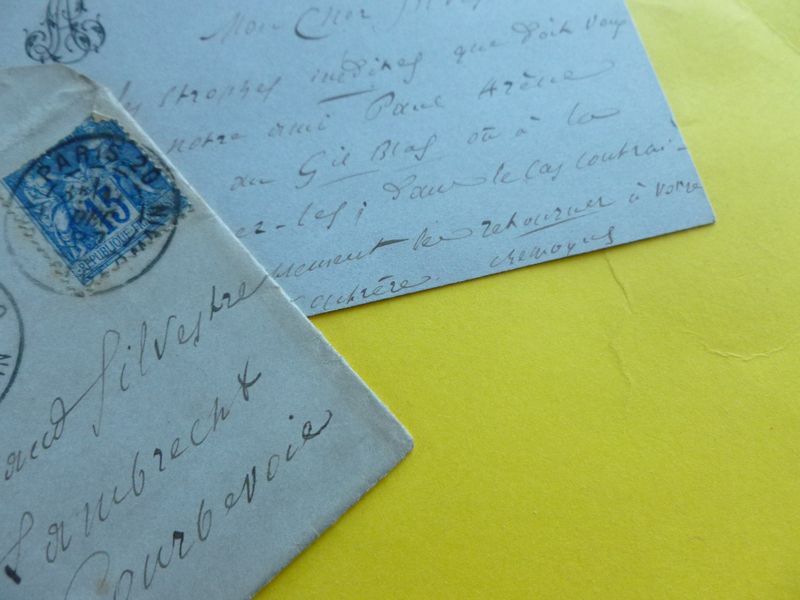 Mon Cher
les strophes inédites que doit vous
notre ami Paul Arène
au Gil Blas ou à la
er-les; dans le cas contrai-
les retourner à votre
PARIS
15
REPUBLIQUE
and Silvestre
Lambrecht
Courbevoie